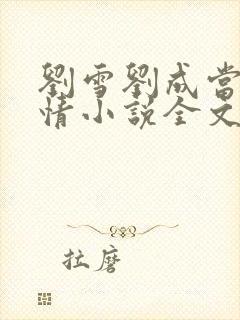 劉雪劉成當
情小説全文
拉磨